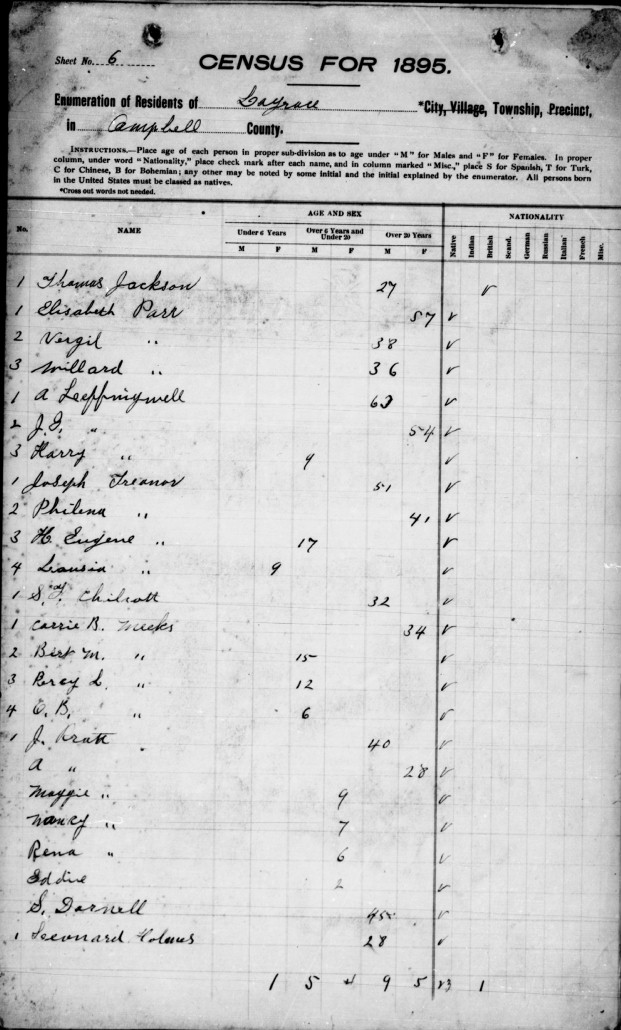 Sheet No. 6
CENSUS FOR 1895.
Enumeration of Residents of *City, Village, Township, Precinct,
in Campbell County.
INSTRUCTIONS.—Place age of each person in proper sub-division as to age under "M" for Males and "F" for Females. In proper
column, under word "Nationality," place check mark after each name, and in column marked "Misc.," place S for Spanish, T for Turk,
C for Chinese, B for Bohemian; any other may be noted by some initial and the initial explained by the enumerator. All persons born
in the United States must be classed as natives.
*Cross out words not needed.
AGE AND SEX NATIONALITY
No. NAME Under 6 Years Over 6 Years and Under 20 Over 20 Years Native Indian British Scand. German Russian Italian French Misc.
M F M F M F
1 Thomas Jackson 27 ✓
1 Elisabeth Parr 57 ✓
2 Vergil " 38 ✓
3 Willard " 36 ✓
1 A Leffingwell 63 ✓
2 J. G. " 54 ✓
3 Harry " 9 ✓
1 Joseph Treanor 51 ✓
2 Philena " 41 ✓
3 H. Eugene " 17 ✓
4 " 9 ✓
1 S. T. Chilcott 32 ✓
1 Carrie B. Meeks 34 ✓
2 Bert M. " 15 ✓
3 Percy L. " 12 ✓
4 O. B. " 6 ✓
1 J. Pratt 40 ✓
A " 28 ✓
Maggie " 9 ✓
Nancy " 7 ✓
Rena " 6 ✓
Eddie 2 ✓
S. Darnell 45 ✓
1 Leeonard Holmes 28 ✓
1 5 4 9 5 23 1